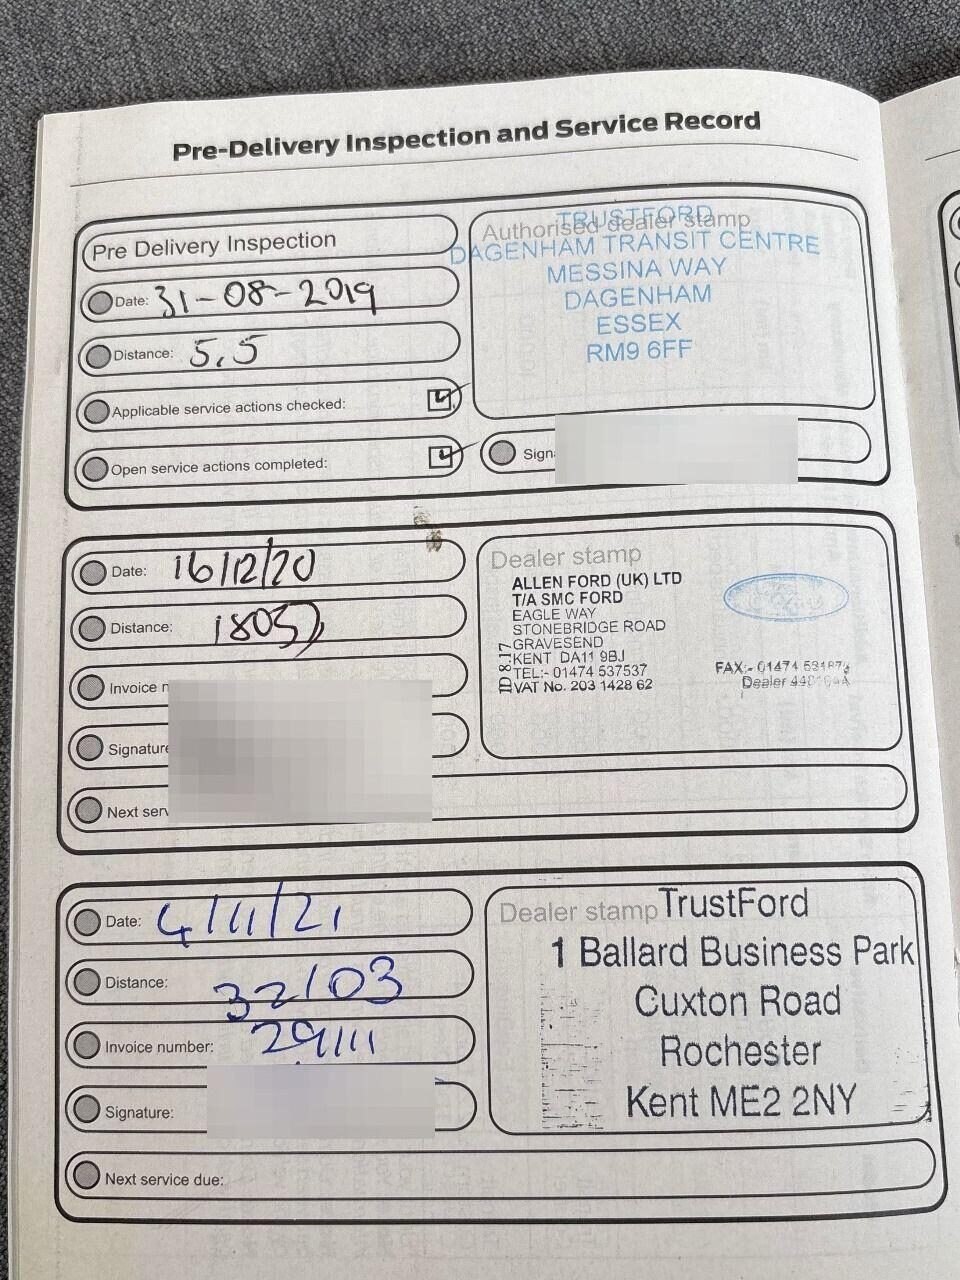 Pre-Delivery Inspection and Service Record
Pre Delivery Inspection
Date: 31-08-2019
Distance: 5,5
Applicable service actions checked:
Open service actions completed:
Authorised dealer stamp
TRUSTFORD
DAGENHAM TRANSIT CENTRE
MESSINA WAY
DAGENHAM
ESSEX
RM9 6FF
Date: 16/12/20
Distance: 18037
Invoice
Signature
Next
Dealer stamp
ALLEN FORD (UK) LTD
T/A SMC FORD
EAGLE WAY
STONEBRIDGE ROAD
GRAVESEND
KENT DA11 9BJ
TEL:- 01474 537537
VAT No. 203 1428 62
ID 8.17
FAX:- 01474
Dealer
Date: 4/11/21
Distance: 32103
Invoice number: 291111
Signature:
Next service due:
Dealer stamp
TrustFord
1 Ballard Business Park
Cuxton Road
Rochester
Kent ME2 2NY